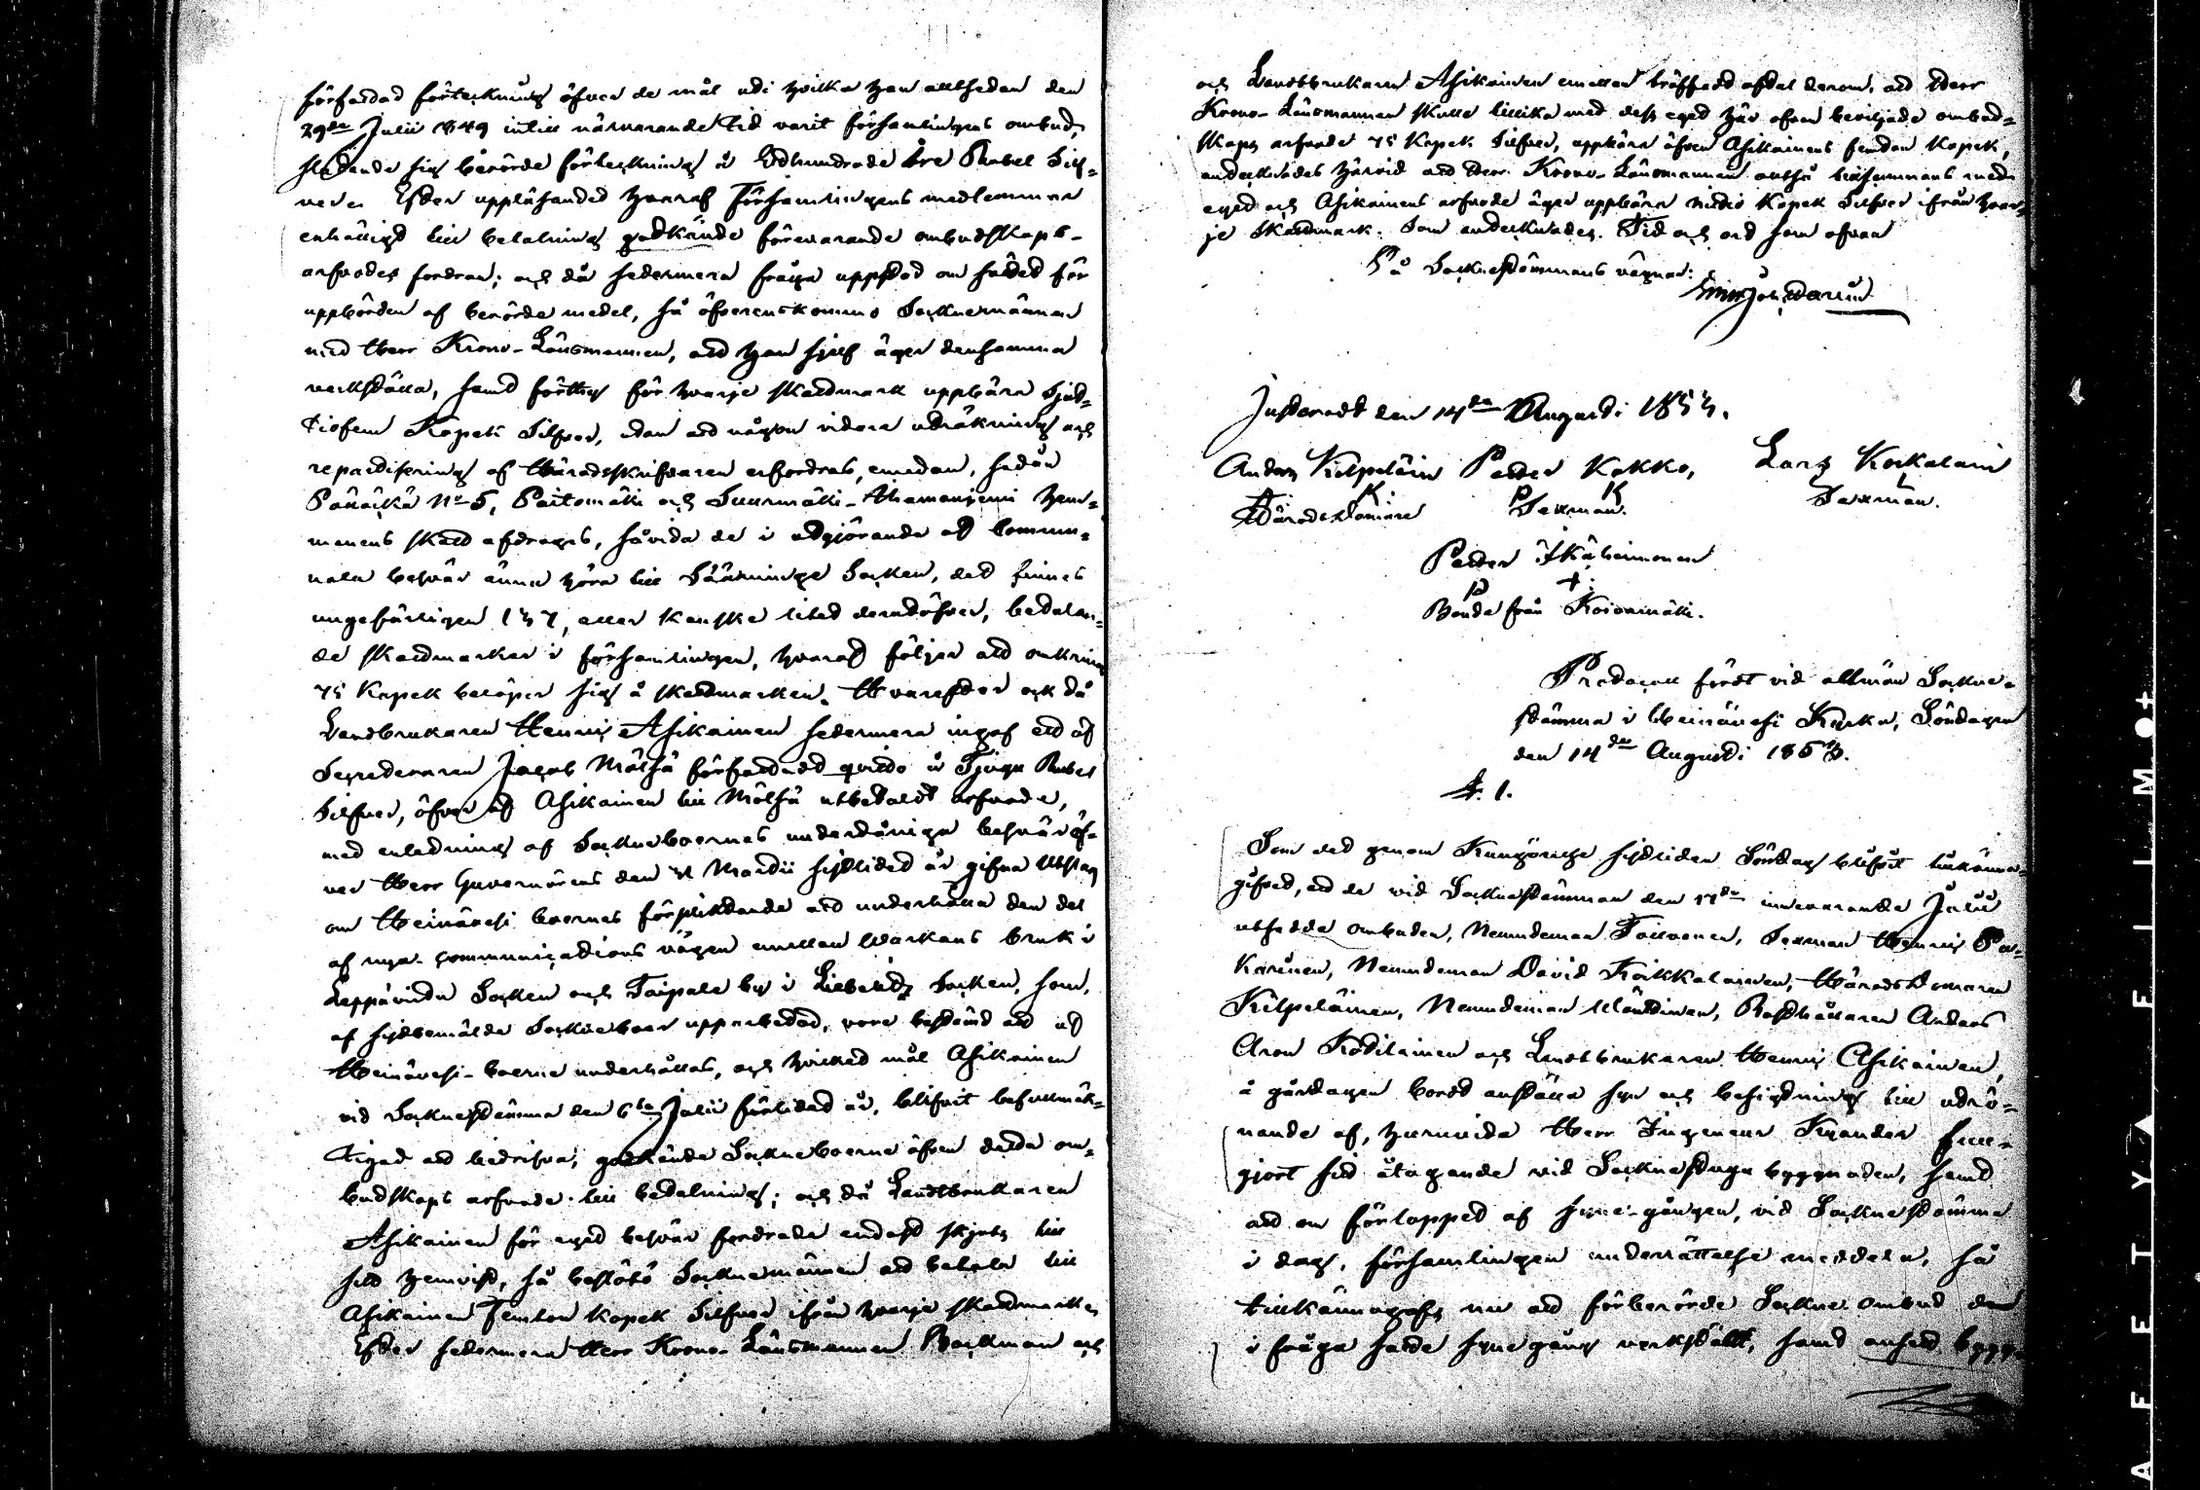 författad förteckning öfver de mål udi hvilka han alltsedan den
29de Julii 1849 intill närvarande tid varit församlingens ombud,
slutande sig berörde förteckning å Etthundrade tre Rubel Silf-
ver. Efter uppläsandet häraf Församlingens medlemmar
enhälligt till betalning godkände förevarande ombudskaps-
arfvodes fordran; och då sedermera fråga uppstod om sättet för
uppbörden af berörde medel, så öfverenskommo Socknemännen
med Herr Krono-Länsmannen, att han sjelf äger densamma
verkställa, samt förthy för hvarje skattmark uppbära Sjut-
tiofem Kopek Silfver, utan att någon vidare uträkning och
repartisering af Häradsskrifvaren erfordras, emedan, sedan
No 5, och hem-
manens skatt afdrages, såvida de i utgörande af Commu-
nala besvär ännu höra till Säämingi Socken, det finnes
ungefärligen 137, eller kanske litet derutöfver, betalan-
de skattmarker i församlingen, hvaraf följer att omkring
75 Kopek belöper sig å skattmarken. Hvarefter ock då
Landbrukaren Henric Asikainen sedermera ingaf ett af
Sergeanten Jacob Mölsä författadt qvitto å Tjugu Rubel
Silfver, öfver af Asikainen till Mölsä utbetaldt arfvode,
med anledning af Sockneboernes underdåniga besvär öf-
ver Herr Guvernörens den Martii sistlidet år gifna Utslag
om Heinävesi boernes förpliktande att underhålla den del
af nya communications vägen emellan Warkaus bruk i
Leppävirta Socken och Taipale by i Libelits Socken, som,
af sistbemälde Sockneboer upparbetad, vore bestämd att af
Heinävesi-boerne underhållas, och hvilket mål Asikainen
vid Socknestämma den 6te Julii förlidet år, blifvit befullmäk-
tigad att bedrifva, godkände Sockneboerne äfven detta om-
budskaps arfvode till betalning; och då Landtbrukaren
Asikainen för eget besvär fordrade endast skjuts till
sitt hemvist, så beslöto Sockenemännen att betala till
Asikainen Femton Kopek Silfver ifrån hvarje skattmark.
Efter sedermera Herr Krono-Länsmannen Backman och
och Landtbrukaren Asikainen emellan träffadt aftal derom, att Herr
Krono-Länsmannen skulle tillika med dess eget här ofvan beviljade ombud-
skaps arfvode 75 Kopek Silfver, uppbära äfven Asikainens femton Kopek,
antecknades härvid att Herr Krono-Länsmannen altså tillsammans med
eget och Asikainens arfvode äger uppbära nittio Kopek Silfver ifrån hvar-
je Skattmark. Som antecknades. Tid och ort som ofvan
På Socknestämmans vägnar:
Justeradt den 14de Augusti 1853.
Anders Kilpeläin Petter Kakko, Lars Koikalain
K P K
Häradsdomare Sexman. Sexman.
Petter
P
Bonde från Koivumäki.
Protocoll fördt vid allmän Sockne-
stämma i Heinävesi Kyrka, Söndagen
den 14de Augusti 1853.
§. 1.
Som det genom Kungörelse sistliden Söndag blifvit tillkänna-
gifvet, att de vid Socknestämman den 17de innevarande Julii
utsedda ombuden, Nämndeman Toivanen, Sexman Henric Pa-
karinen, Nämndeman David Koikkalainen, Häradsdomaren
Kilpeläinen, Nämndeman Manninen, Rusthållaren Anders
Aron Kotilainen och Landtbrukaren Henric Asikainen,
å gårdagen bordt anställa syn och besigtning till utrö-
nande af, huruvida Herr Ingenieur Kyander full-
gjort sitt åtagande vid Socknestuga byggnaden, samt
att om förloppet af syne-gången, vid Socknestämma
i dag, församlingen underrättelse meddela, så
tillkännagafs nu att förberörde Sockne ombud den
i fråga satte synegång verkställt, samt ansett bygg-